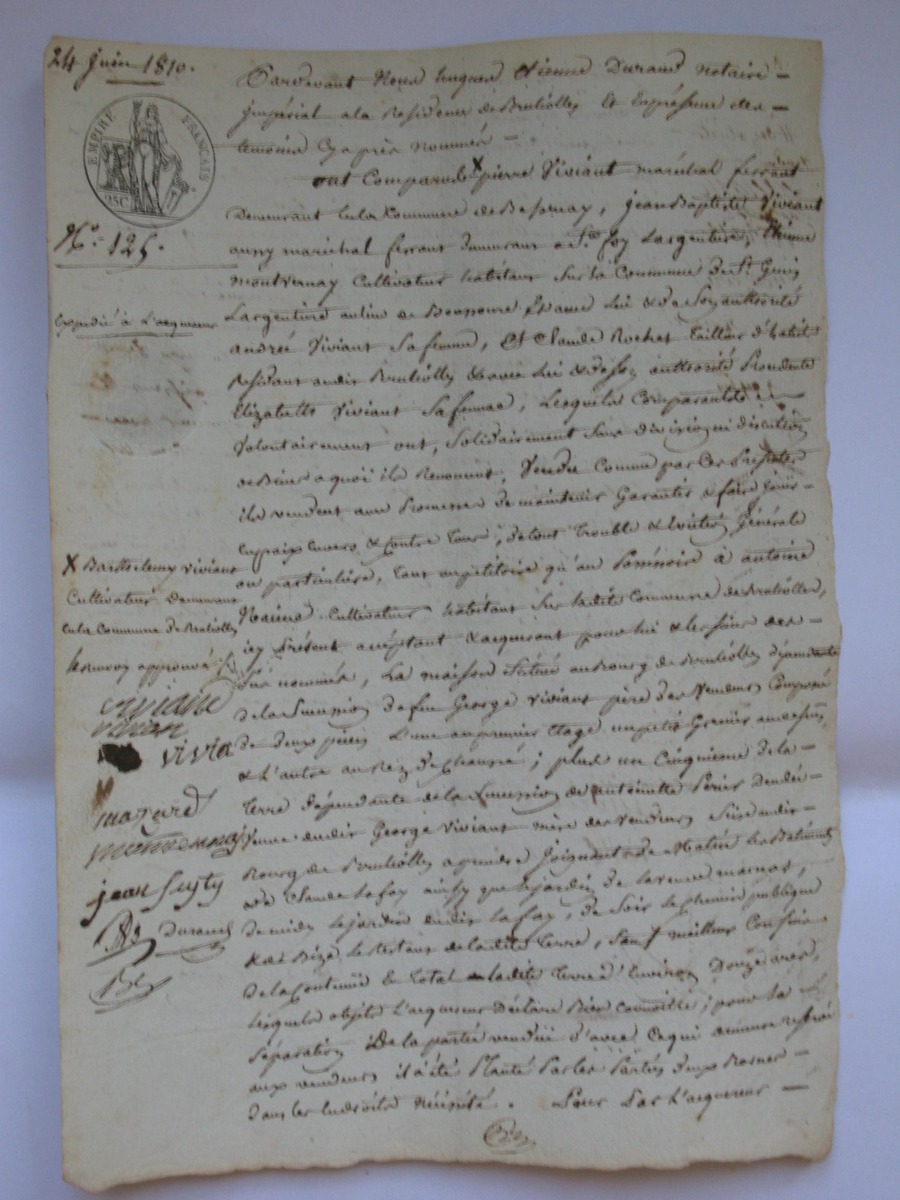 24 juin 1810.
EMPIRE FRANÇAIS
25C.
N.o 125.
expédié à l'acquereur
Pardevant Nous hugues Etienne Durand notaire
jmpérial a la Residence de Brulioles Et En présence des
temoins Cy après Nommés
ont Comparu les X pierre Viviant maréchal ferrant
Demeurant En la Commune de Bessenay, jean Baptiste Viviant
aussy maréchal ferrant demeurant a Ste foy Largentiere, Etienne
montvernay Cultivateur habitant sur la Commune de St Genis
Largentiere au lieu de et avec lui & de Son authorité
andrée Viviant Sa femme, Et Claude Rochet tailleur d'habit
Residant audit Brulioles & avec lui & de Son authorité Procedente
Elizabeth Viviant Sa femme, Lesquels Comparants
Volontairement ont, Solidairement Sans division ni discution
de Biens a quoi ils Renoncent, Vendu Comme par Ces Presentes
ils vendent avec Promesse de maintenir Garantir & faire jouir
En paix Envers & Contre tous, de tout trouble & Eviction Générale
ou particuliere, tant au petitoire qu'au Possessoire à antoine
Cultivateur habitant Sur ladite Commune de Brulioles,
icy Présent acceptant & acquerant pour lui & les Siens
Sus nommés, La maison Scituée au Bourg de Brulioles dépendante
de la Succession de feu George Viviant père des Vendeurs Composée
de deux pieces L'une au premier Etage un petit Grenier au dessus
& L'autre au Rez de Chaussé; plus un Cinquieme de la
terre dépendante de la Succession de antoinette Perier
dudit George Viviant mère des Vendeurs Scise audit
Bourg de Brulioles a prendre Joignant de Matin les Batiments
de Claude Lafay ainsy que le jardin de la veuve
de midy le jardin dudit Lafay, de Soir le Chemin publique
& de Bize le restant de la dite terre, Sauf meilleurs Confins
de la Contenue En total ladite terre d'Environ Douze ares,
Lesquels objets L'acquereur Déclare Bien Connoitre; pour la
Séparation De la partie vendüe d'avec Ce qui demeure
aux vendeurs il a été Planté Par les Parties deux Bornes
dans les Endroits Nécessité. Pour Par L'acquereur
X Barthelemy Viviant
Cultivateur Demeurant
En la Commune de Brulioles
le renvoy approuvé
vivian
vivia
jean
Durand